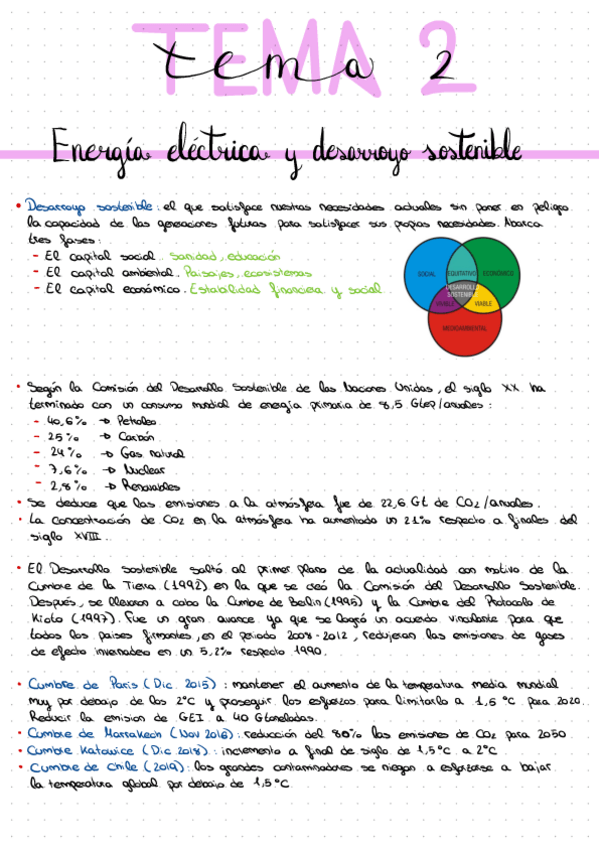 TEMA 2
tema 2
Energía eléctrica y desarroyo sostenible
• Desarroyo sostenible: el que satisface nuestras necesidades actuales sin poner en peligro
la capacidad de las generaciones futuras para satisfacer sus propias necesidades. Abarca
tres fases:
- El capital social. Sanidad, educación
- El capital ambiental. Paisajes, ecosistemas
- El capital económico. Estabilidad financiera y social
SOCIAL
EQUITATIVO
ECONÓMICO
DESARROLLO
SOSTENIBLE
VIABLE
MEDIOAMBIENTAL
• Según la Comisión del Desarrollo Sostenible de las Naciones Unidas, el siglo XX ha
terminado con un consumo mundial de energía primaria de 8,5 Gtep/anuales:
- 40,6% → Petroleo
- 25% → Carbón
- 24% → Gas natural
- 7,6% → Nuclear
- 2,8% → Renovables
• Se deduce que las emisiones a la atmósfera fue de 22,6 Gt de CO2/anuales.
• La concentración de CO2 en la atmósfera ha aumentado un 21% respecto a finales del
siglo XVIII.
• El Desarrollo sostenible saltó al primer plano de la actualidad con motivo de la
Cumbre de la Tierra (1992) en la que se creó la Comisión del Desarrollo Sostenible.
Después, se llevaron a cabo la Cumbre de Berlin (1995) y la Cumbre del Protocolo de
Kioto (1997). Fue un gran avance ya que se logró un acuerdo vinculante para que
todos los paises firmantes, en el periodo 2008-2012, redujeran las emisiones de gases
de efecto invernadero en un 5,2% respecto 1990.
• Cumbre de París (Dic. 2015): mantener el aumento de la temperatura media mundial
muy por debajo de los 2°C y proseguir los esfuerzos para limitarlo a 1,5 °C para 2020.
Reducir la emision de GEI a 40 Gtoneladas.
• Cumbre de Marrakech (Nov 2016): reducción del 80% las emisiones de CO2 para 2050
• Cumbre Katowice (Dic 2018): incremento a final de siglo de 1,5°C a 2°C
• Cumbre de Chile (2019): los grandes contaminadores se niegan a esforzarse a bajar
la temperatura global por debajo de 1,5°C